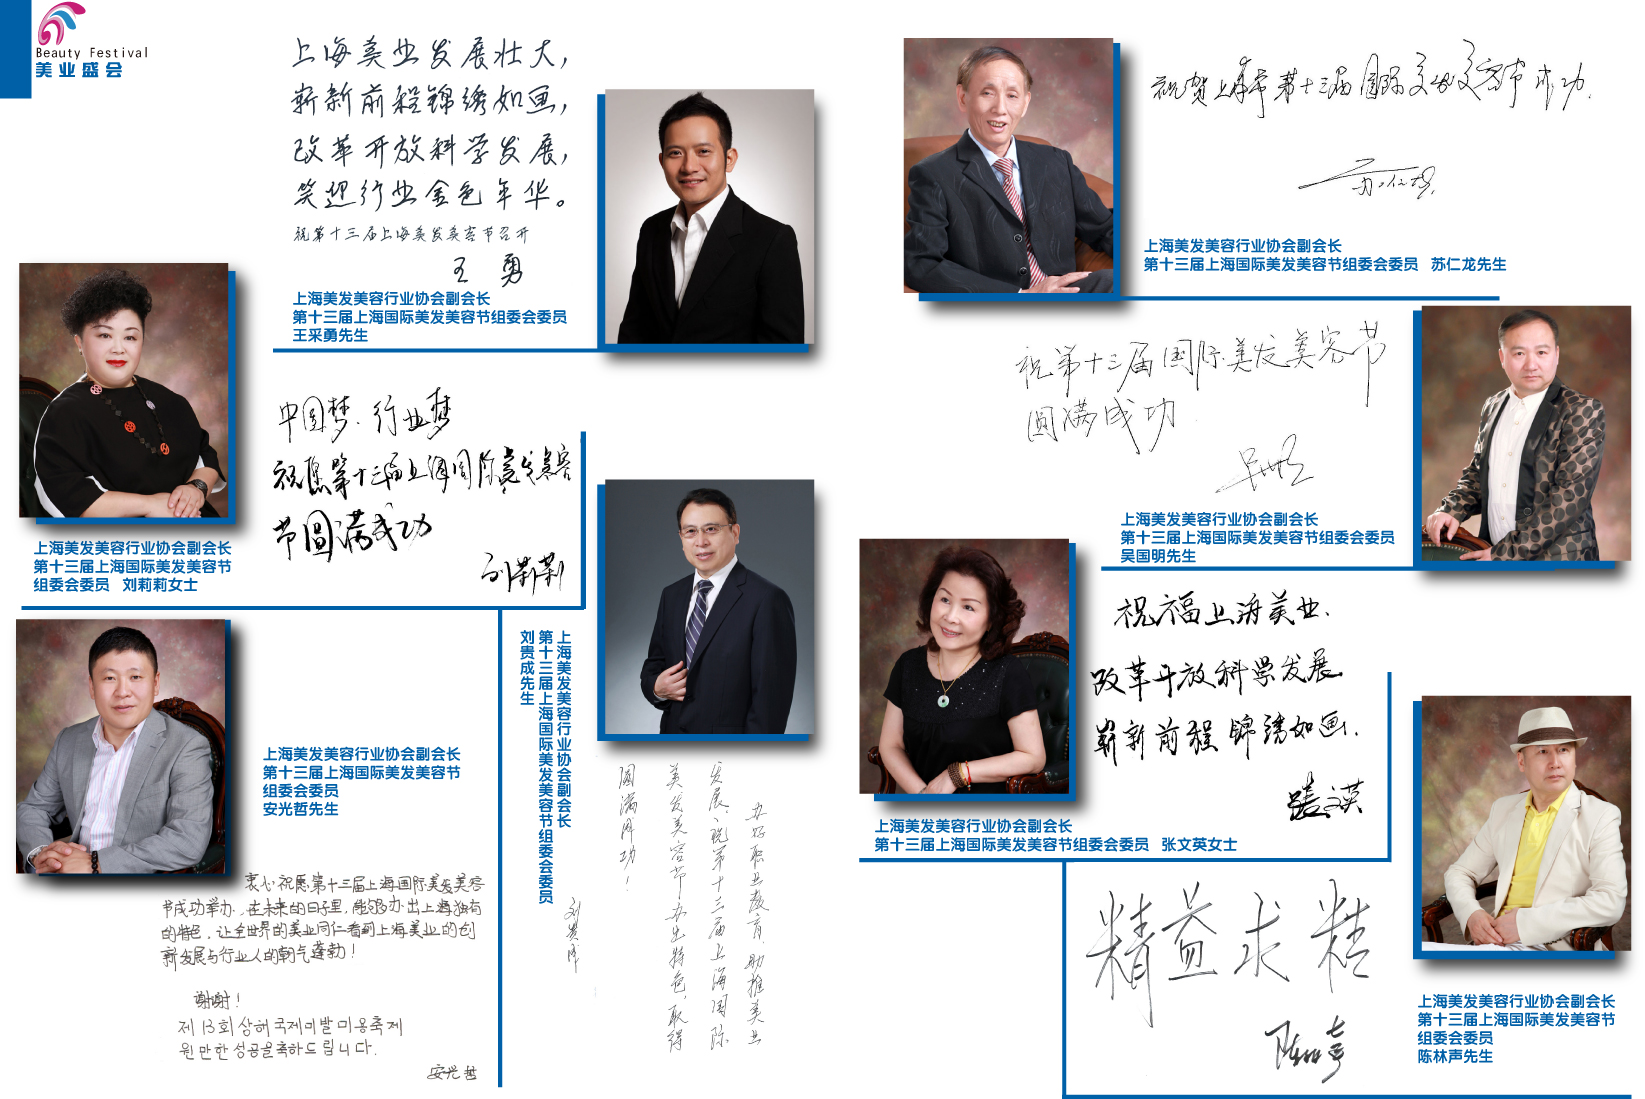 Beauty Festival
美业盛会
上海美业发展壮大，
崭新前程锦绣如画，
改革开放科学发展，
笑迎行业金色年华。
祝第十三届上海美发美容节召开
王勇
上海美发美容行业协会副会长
第十三届上海国际美发美容节组委会委员
王采勇先生
中国梦·行业梦
祝愿第十三届上海国际美发美容
节圆满成功
刘莉莉
上海美发美容行业协会副会长
第十三届上海国际美发美容节
组委会委员 刘莉莉女士
上海美发美容行业协会副会长
第十三届上海国际美发美容节
组委会委员
安光哲先生
衷心祝愿第十三届上海国际美发美容
节成功举办，在未来的日子里，能够办出上海独有
的特色，让全世界的美业同仁看到上海美业的创
新发展与行业人的朝气蓬勃！
谢谢！
제13회 상해 국제미발미용축제
원만한 성공을 축하드립니다.
安光哲
上海美发美容行业协会副会长
第十三届上海国际美发美容节组委会委员
刘贵成先生
办好职业教育，助推美业
发展，祝第十三届上海国际
美发美容节办出特色，取得
圆满成功！
刘贵成
祝贺上海市第十三届国际美发美容节成功.
苏仁龙
上海美发美容行业协会副会长
第十三届上海国际美发美容节组委会委员 苏仁龙先生
祝第十三届国际美发美容节
圆满成功
上海美发美容行业协会副会长
第十三届上海国际美发美容节组委会委员
吴国明先生
祝福上海美业.
改革开放科学发展
崭新前程锦绣如画.
张文英
上海美发美容行业协会副会长
第十三届上海国际美发美容节组委会委员 张文英女士
精益求精
上海美发美容行业协会副会长
第十三届上海国际美发美容节
组委会委员
陈林声先生